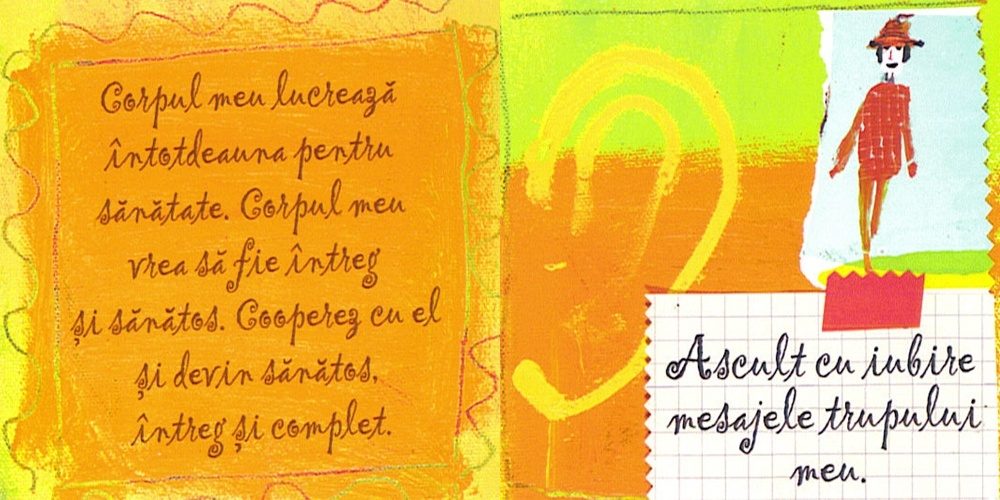 Corpul meu lucrează
întotdeauna pentru
sănătate. Corpul meu
vrea să fie întreg
și sănătos. Cooperez cu el
și devin sănătos,
întreg și complet.
Ascult cu iubire
mesajele trupului
meu.